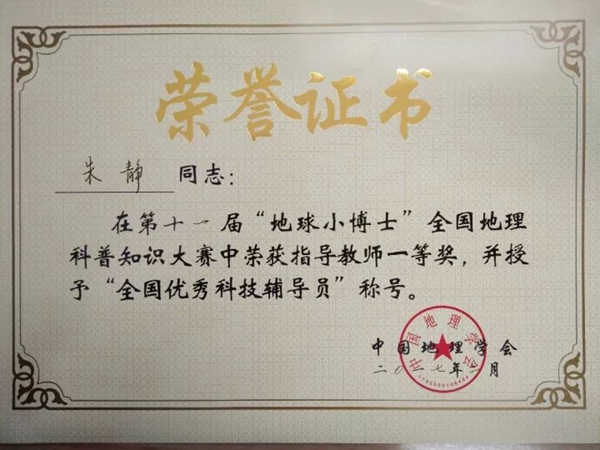 荣誉证书
朱静 同志:
在第十一届“地球小博士”全国地理
科普知识大赛中荣获指导教师一等奖,并授
予“全国优秀科技辅导员”称号。
中国地理学会
二〇一七年 月
中国地理学会